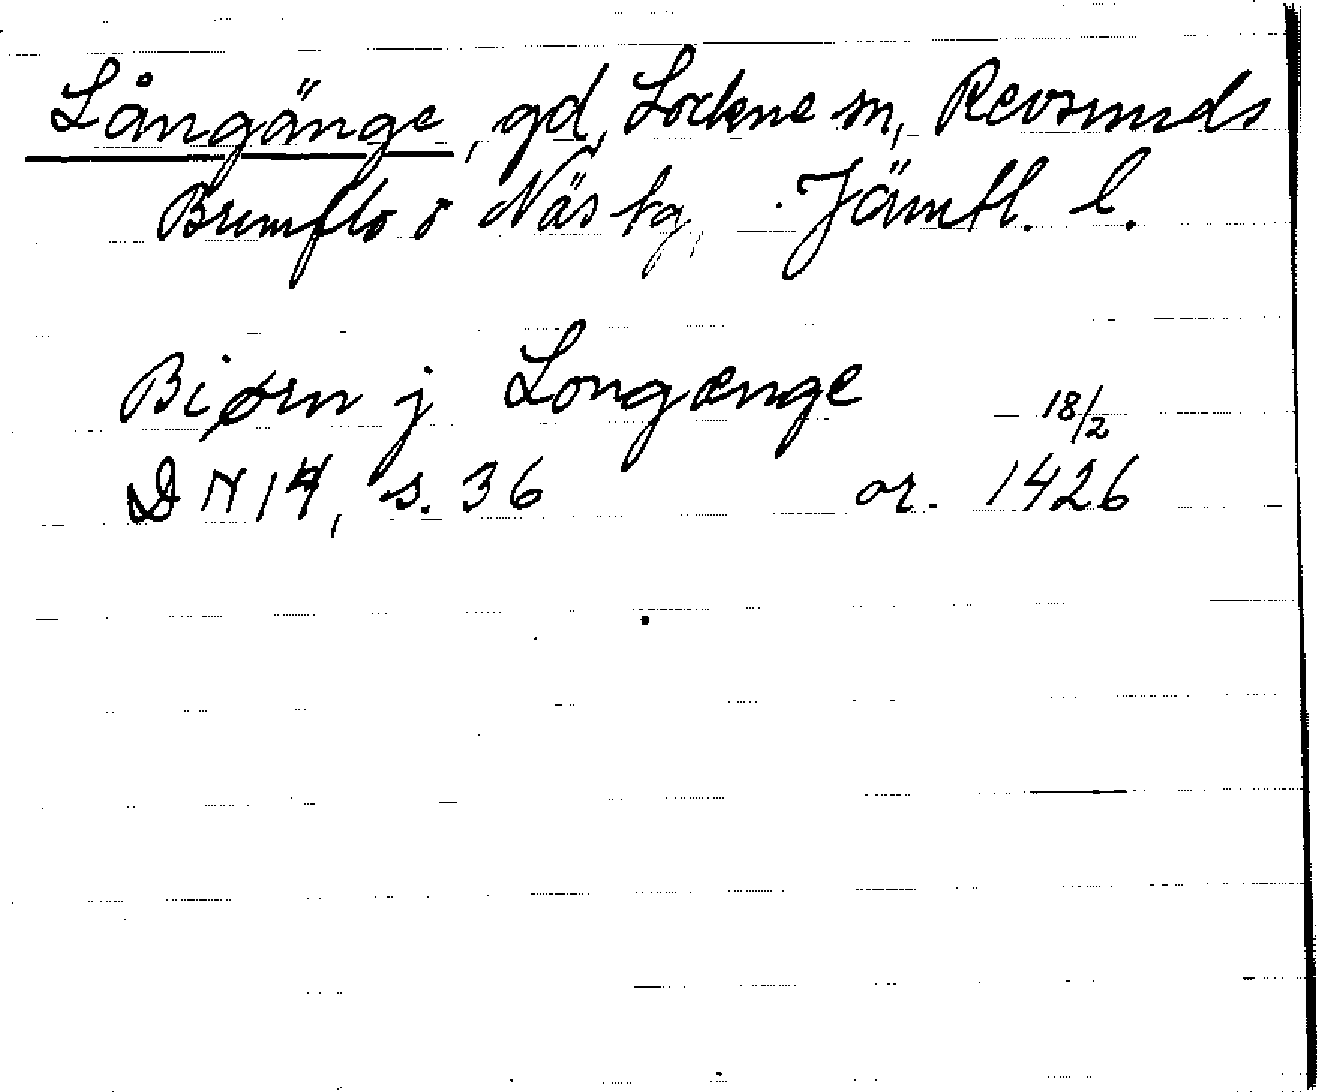 Långänge, gd, Lockne sn, Revsunds
Brunflo o Näs tg, Jämtl. l.
Biørn j Longænge 18/2
DN 14, s. 36 or. 1426